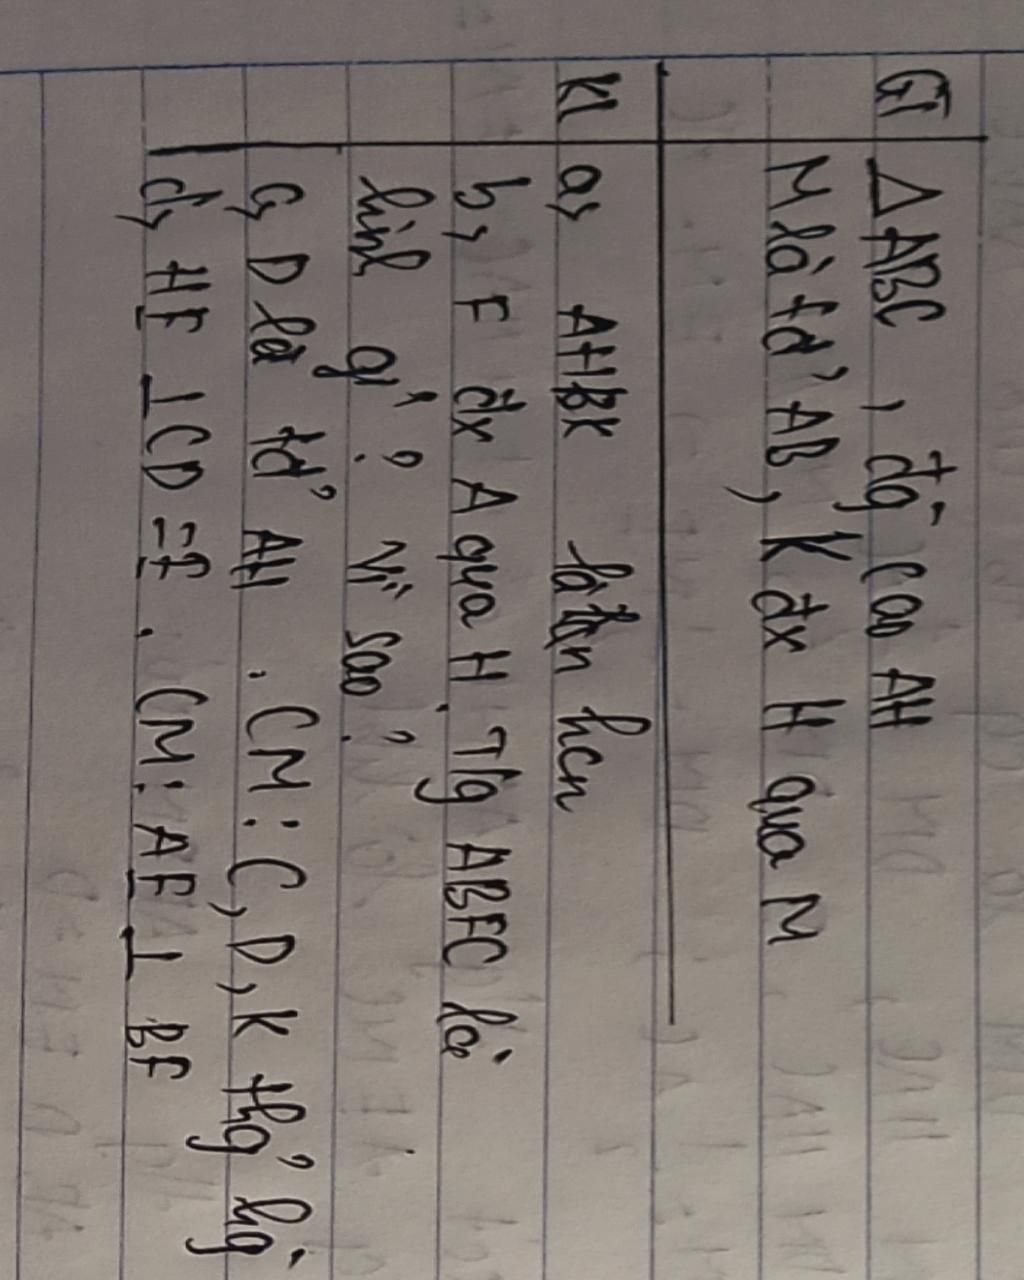 GT Δ ABC , đg` cao AH
M là tđ' AB, K đx H qua M
KL a, AHBK là hcn
b, F đx A qua H. T/g ABFC là
hình gì ? Vì sao ?
c, D là tđ' AH . CM : C, D, K thg' hg`
d, HE ⊥ CD = E . CM : AE ⊥ BE